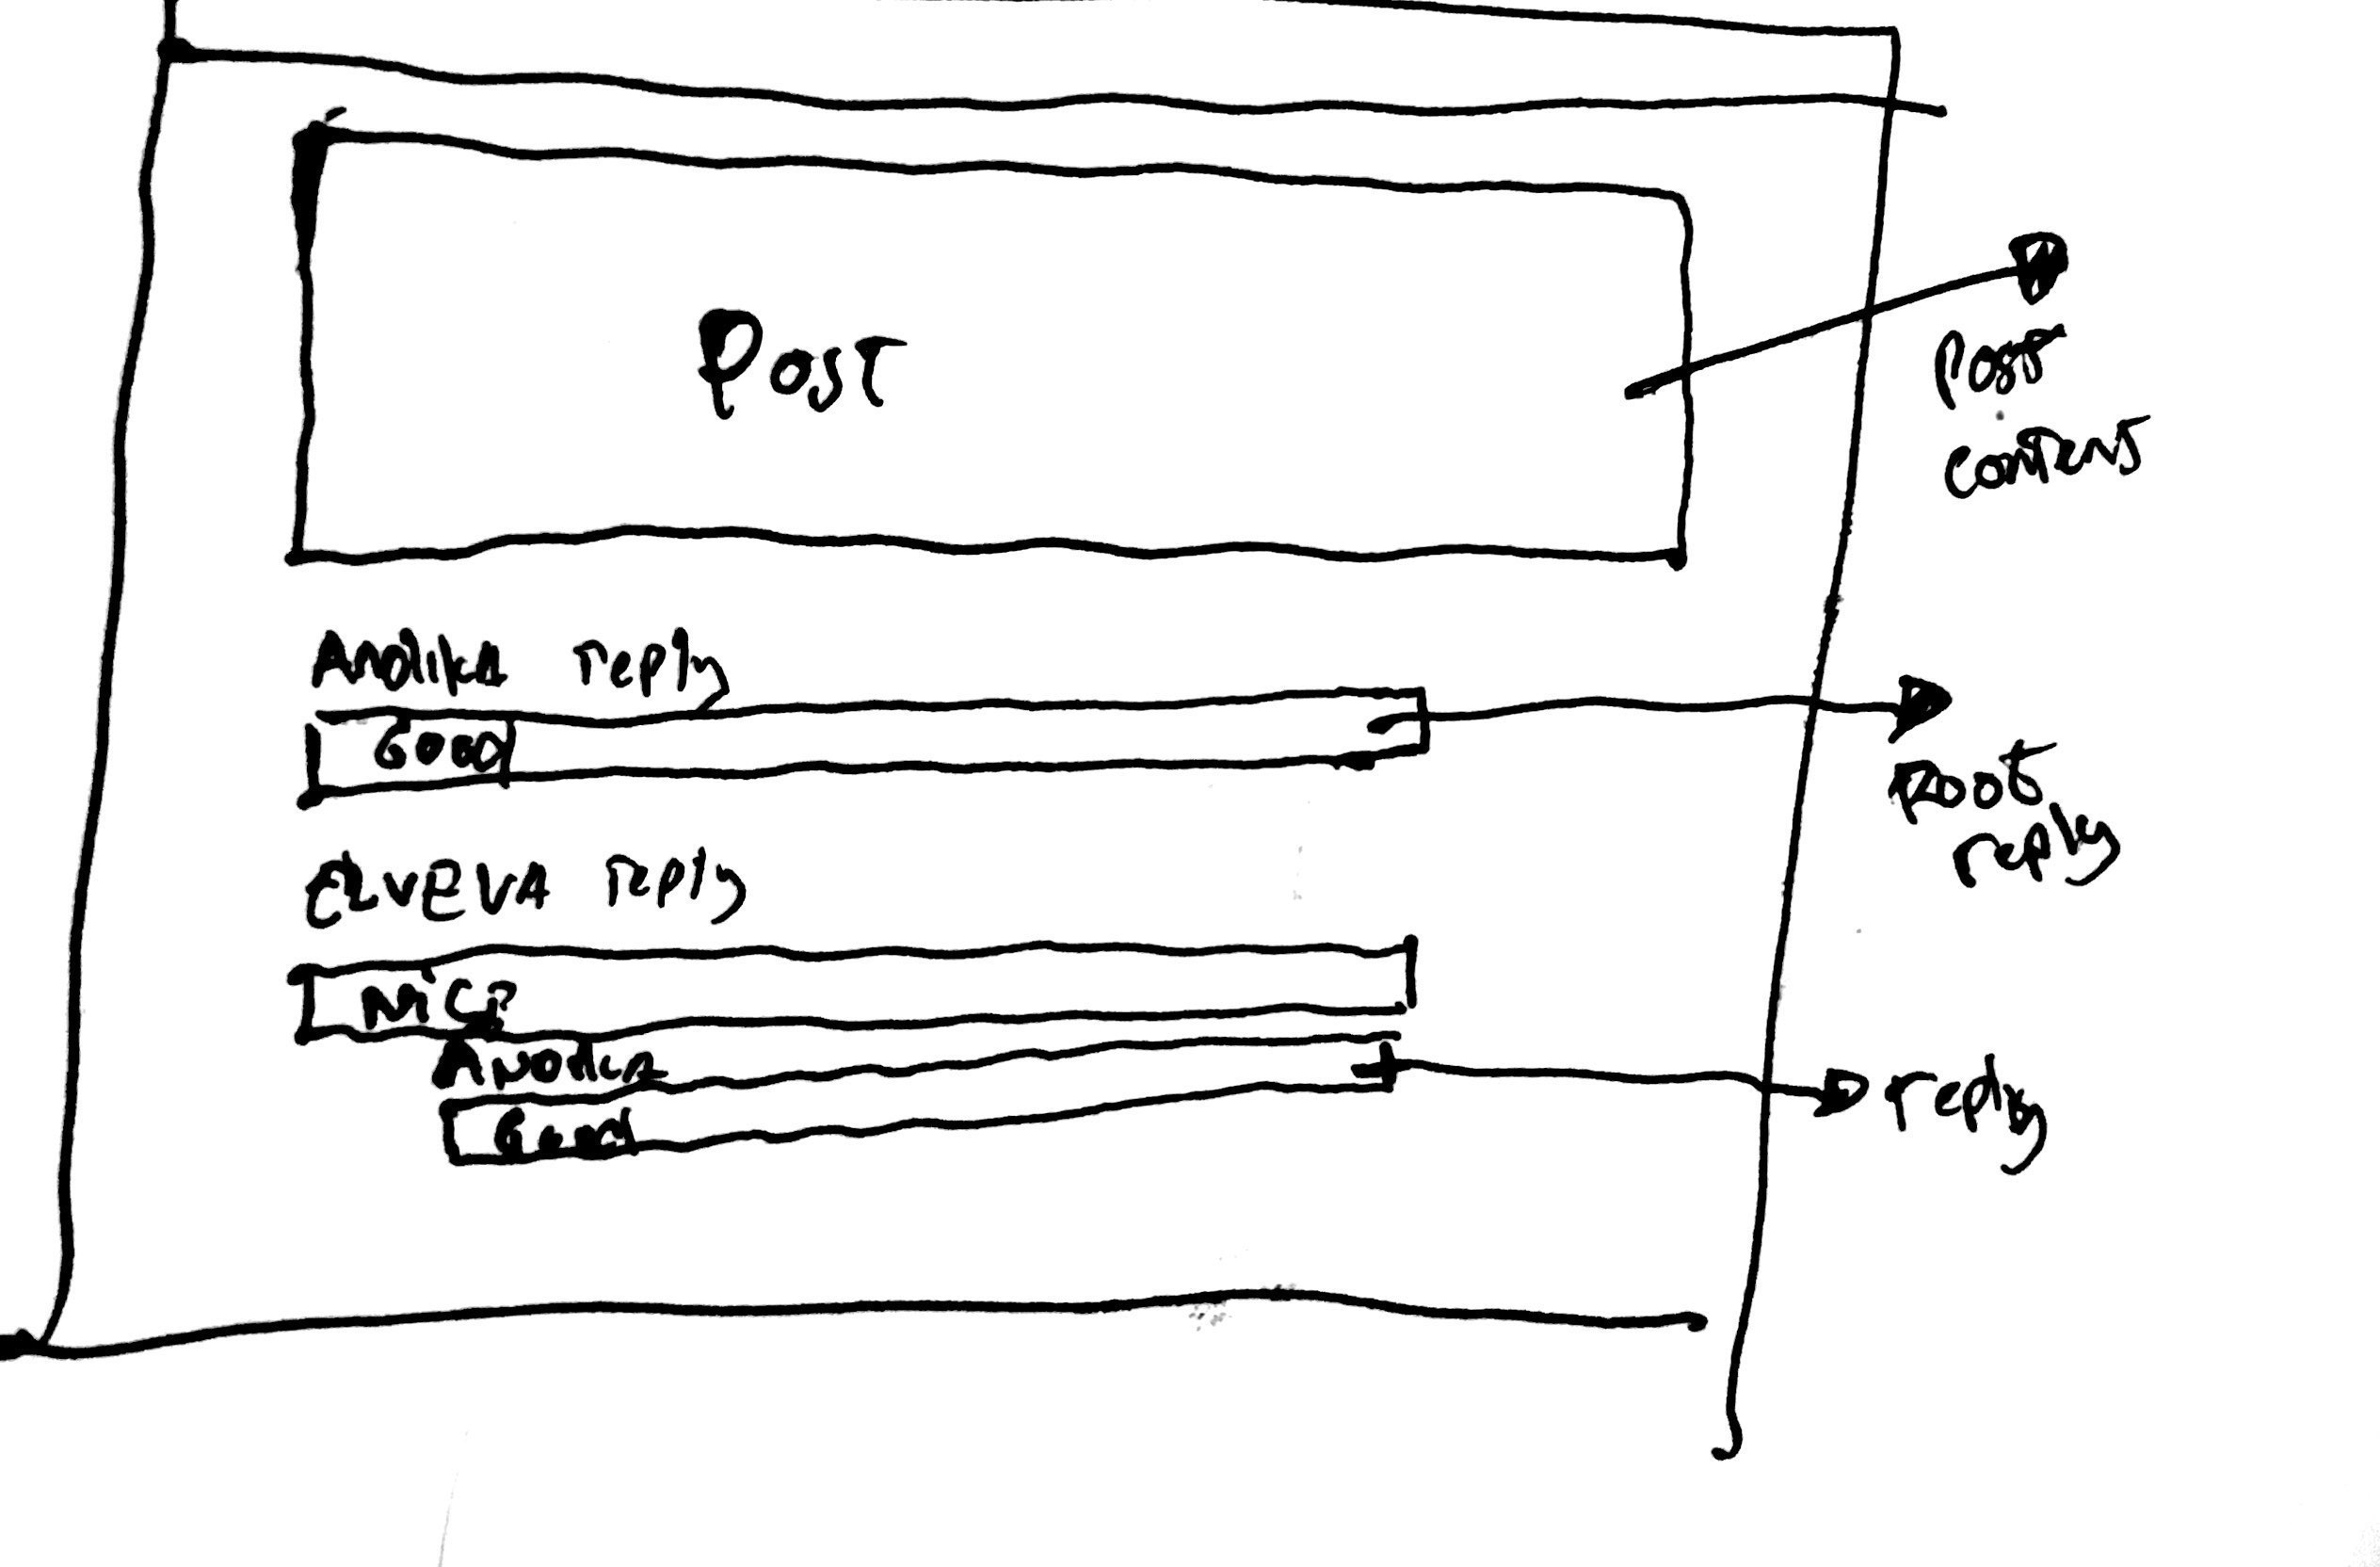 Post
Post
content
Andika reply
Good
Root
reply
ELVEVA reply
Nice
Andika
Good
reply